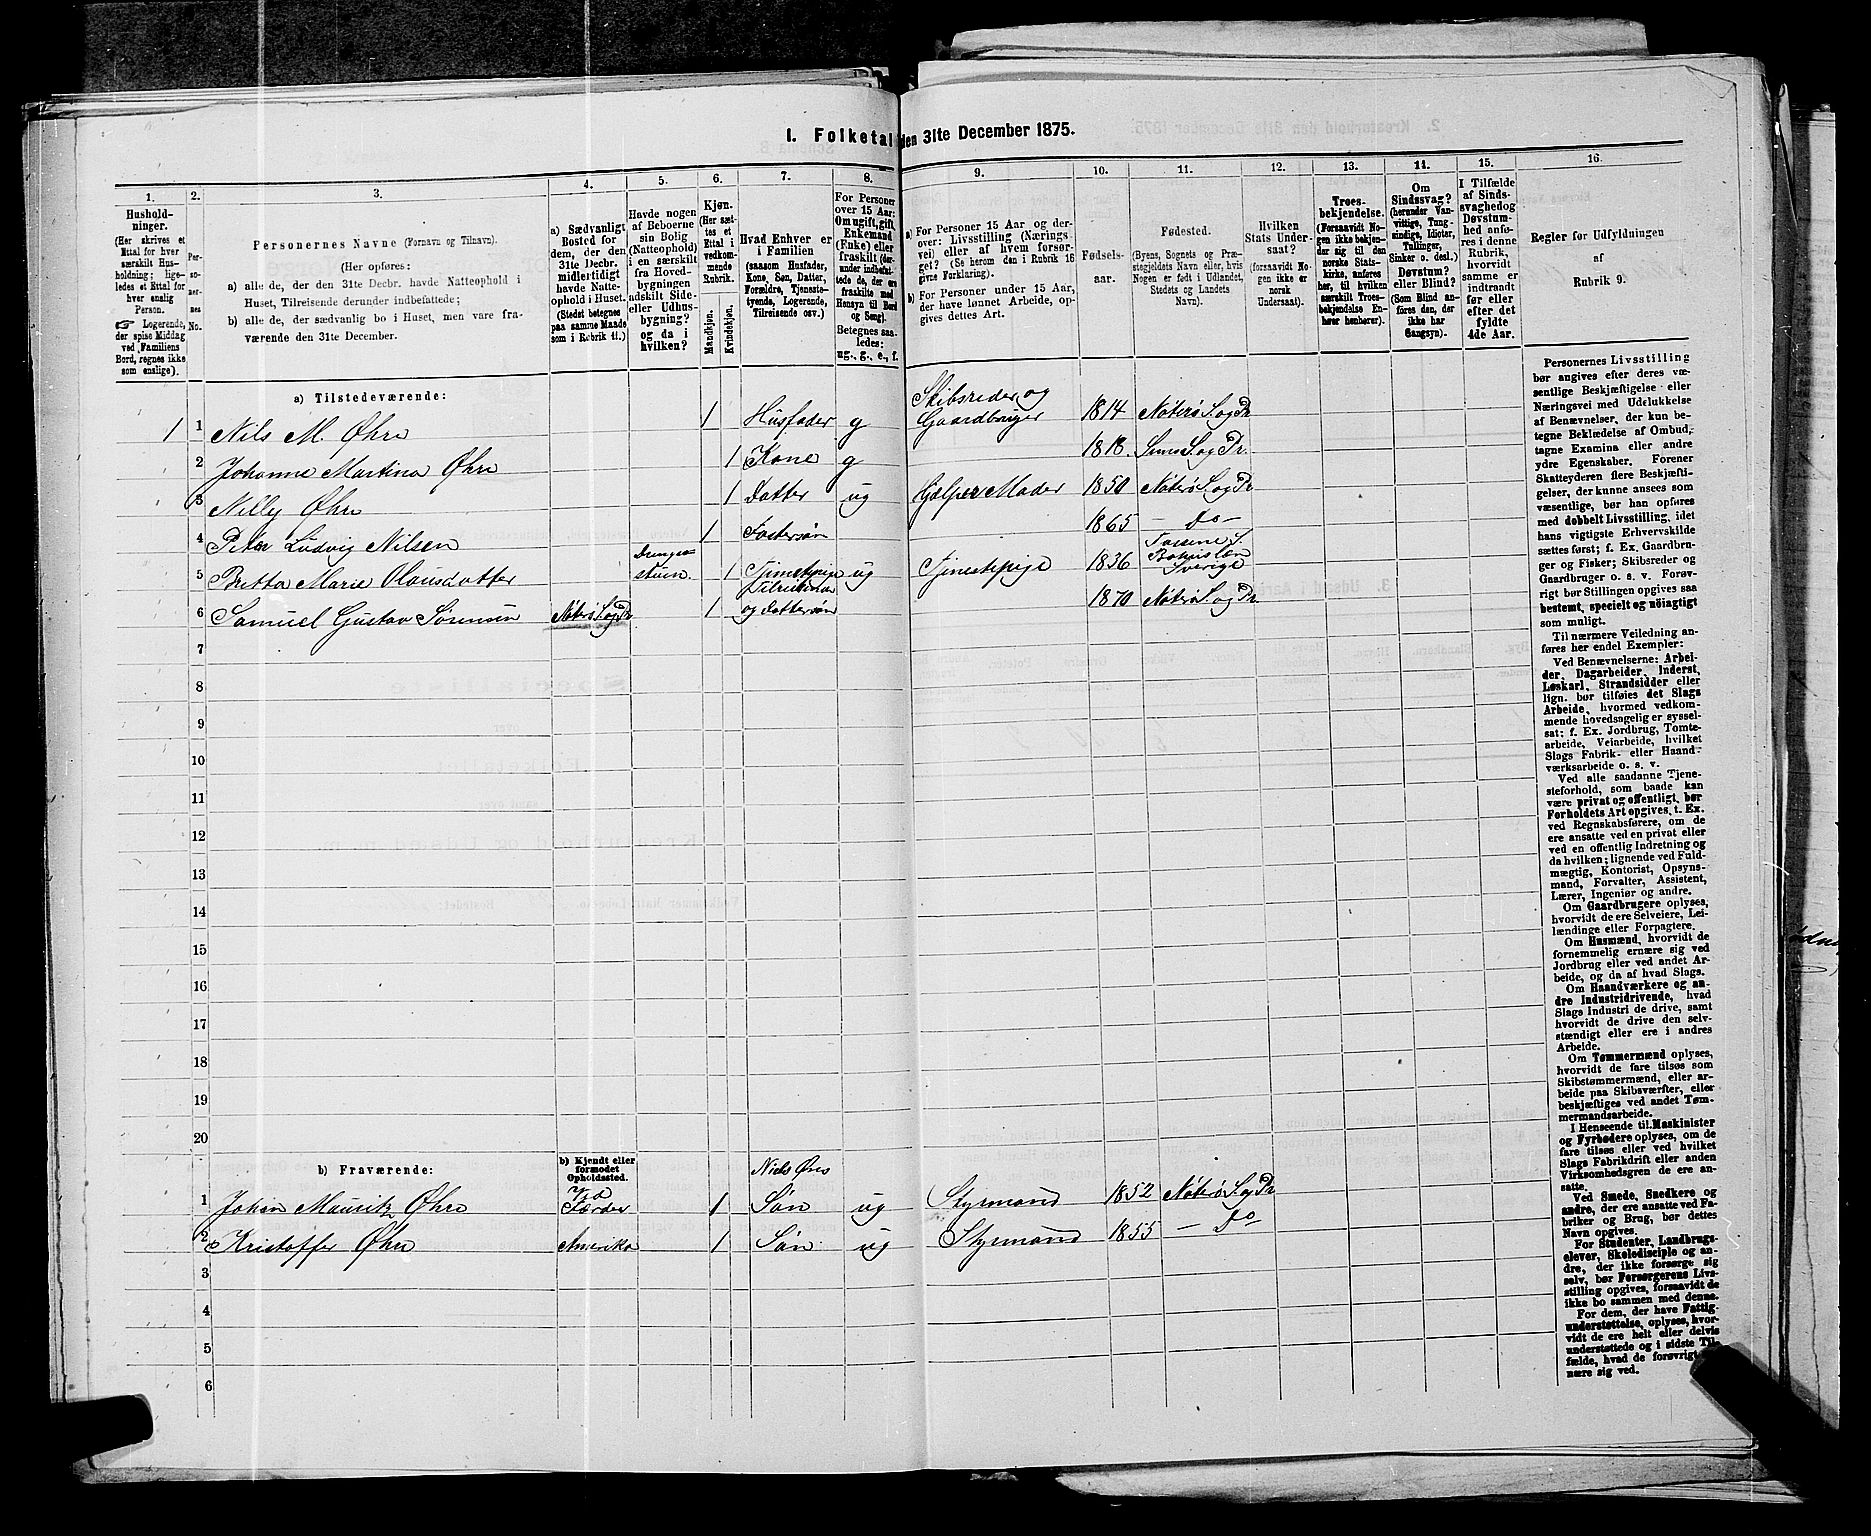 I. Folketal den 31te December 1875.
1.
2.
3.
4.
5.
6.
7.
8.
9.
10.
11.
12.
13.
14.
15.
16.
Hushold-
ninger.
(Her skrives et
Ettal for hver
særskilt Hus-
holdning; lige-
ledes et Ettal for
hver enslig
Person.
☞ Logerende,
der spise Middag
ved Familiens
Bord, regnes ikke
som enslige).
Per-
so-
ner-
nes
No.
Personernes Navne (Fornavn og Tilnavn).
(Her opføres:
a) alle de, der den 31te Decbr. havde Natteophold i
Huset, Tilreisende derunder indbefattede;
b) alle de, der sædvanlig bo i Huset, men vare fra-
værende den 31te December.
a) Sædvanligt
Bosted for
dem, der den
31te Decbr.
midlertidigt
havde Natte-
ophold i Huset.
(Stedet betegnes
paa samme Maade
som i Rubrik 11.)
Havde nogen
af Beboerne
sin Bolig
(Natteophold)
i en særskilt
fra Hoved-
bygningen
adskilt Side-
eller Udhus-
bygning?
og da i
hvilken?
Kjøn.
(Her sæt-
tes et
Ettal i
vedkom-
mende
Rubrik.
Mandkjøn.
Kvindekjøn.
Hvad Enhver er
i Familien
(saasom Husfader,
Kone, Søn, Datter,
Forældre, Tjeneste-
tyende, Logerende,
Tilreisende osv.)
For Personer
over 15 Aar:
Om ugift, gift,
Enkemand
(Enke) eller
fraskilt (der-
under indbefat-
tede de, der ere
fraskilte med
Hensyn til Bord
og Seng).
Betegnes saa-
ledes:
ug., g., e., f.
a) For Personer 15 Aar og der-
over: Livsstilling (Nærings-
vei) eller af hvem forsør-
get? (Se herom den i Rubrik 16
givne Forklaring).
b) For Personer under 15 Aar,
der have lønnet Arbeide, op-
gives dettes Art.
Fødsels-
aar.
Fødested.
(Byens, Sognets og Præ-
stegjeldets Navn eller, hvis
Nogen er født i Udlandet,
Stedets og Landets
Navn).
Hvilken
Stats Under-
saat?
(forsaavidt No-
gen ikke er
norsk
Undersaat).
Troes-
bekjendelse.
(Forsaavidt No-
gen ikke bekjen-
der sig til den
norske Stats-
kirke, anføres
her, til hvilken
særskilt Troes-
bekjendelse En-
hver henhører).
Om
Sindssvag?
(herunder Van-
vittige, Tung-
sindige, Idioter,
Tullinger,
Sinker o. desl.)
Døvstum?
eller Blind?
(Som Blind an-
føres den, der
ikke har
Gangsyn).
I Tilfælde
af Sinds-
svaghed og
Døvstum-
hed anfø-
res i denne
Rubrik,
hvorvidt
samme er
indtraadt
før eller
efter det
fyldte
4de Aar.
Regler for Udfyldningen
af
Rubrik 9.
a) Tilstedeværende:
1 1 Nils M. Øhre 1 Husfader g Skibsreder og
Gaardbruger 1814 Nøterø S. og Pr
2 Johanne Martina Øhre 1 Kone g 1818. Sems S. og Pr.
3 Nilly Øhre 1 Datter ug Hjælper Moder 1850 Nøterø S. og Pr
4 Peter Ludvig Nilsen 1 Fostersøn 1865 — Do —
5 Britta Marie Olausdatter Drenge-
stuen. 1 Tjenestepige ug Tjenestepige 1836 S.
Bohuslen
Sverige
6 Samuel Gustav Sørensen Nøterø S. og Pr 1 Tilreisende
og Dattersøn 1870 Nøterø S. og Pr
7
8
9
10
11
12
13
14
15
16
17
18
19
20
b) Fraværende:
b) Kjendt eller
formodet
Opholdssted.
1 Johan Mauritz Øhre Ved
Færder 1 Niels Øres
Søn ug Styrmand 1852 Nøterø S. og Pr
2 Kristoffer Øhre Amerika 1 Søn ug Styrmand 1855 — Do
3
4
5
6
Personernes Livsstilling
bør angives efter deres væ-
sentlige Beskjæftigelse eller
Næringsvei med Udelukkelse
af Benævnelser, der kun be-
tegne Beklædelse af Ombud,
tagne Examina eller andre
ydre Egenskaber. Forener
Skatteyderen flere Beskjæfti-
gelser, der kunne ansees som
væsentlige, bør han opføres
med dobbelt Livsstilling, idet
hans vigtigste Erhvervskilde
sættes først; f. Ex. Gaardbru-
ger og Fisker; Skibsreder og
Gaardbruger o. s. v. Forøv-
rigt bør Stillingen opgives saa
bestemt, specielt og nøiagtigt
som muligt.
Til nærmere Veiledning an-
føres her endel Exempler:
Ved Benævnelserne: Arbei-
der, Dagarbeider, Inderst,
Løskarl, Strandsidder eller
lign. bør tilføies det Slags
Arbeide, hvormed vedkom-
mende hovedsagelig er syssel-
sat; f. Ex. Jordbrug, Tomte-
arbeide, Veiarbeide, hvilket
Slags Fabrik- eller Haand-
værksarbeide o. s. v.
Ved alle saadanne Tjene-
steforhold, som baade kan
være privat og offentligt, bør
Forholdets Art opgives, t. Ex.
ved Regnskabsførere, om de
ere ansatte ved en privat eller
ved en offentlig Indretning og
da hvilken; lignende ved Fuld-
mægtig, Kontorist, Opsyns-
mand, Forvalter, Assistent,
Lærer, Ingeniør og andre.
Om Gaardbrugere oplyses,
hvorvidt de ere Selveiere, Lei-
lændinge eller Forpagtere.
Om Husmænd, hvorvidt de
fornemmelig ernære sig ved
Jordbrug eller ved andet Ar-
beide, og da af hvad Slags.
Om Haandværkere og an-
dre Industridrivende, hvad
Slags Industri de drive, samt
hvorvidt de drive den selv-
stændigt eller ere i andres
Arbeide.
Om Tømmermænd oplyses,
hvorvidt de fare tilsøs som
Skibstømmermænd, eller ar-
beide paa Skibsværfter, eller
beskjæftiges ved andet Tøm-
mermandsarbeide.
I Henseende til Maskinister
og Fyrbødere oplyses, om de
fare tilsøs eller ved hvilket
Slags Fabrikdrift eller anden
Virksomhedsgren de ere an-
satte.
Ved Smede, Snedkere og
andre, der ere ansatte ved Fa-
briker og Brug, bør dettes
Navn opgives.
For Studenter, Landbrugs-
elever, Skoledisciple og an-
dre, der ikke forsørge sig
selv, bør Forsørgerens Livs-
stilling opgives, forsaavidt de
ikke bo sammen med denne.
For dem, der have Fattig-
understøttelse, oplyses, hvor-
vidt de ere helt eller delvis
understøttede og i sidste Til-
fælde, hvad de forøvrigt
nære sig ved.